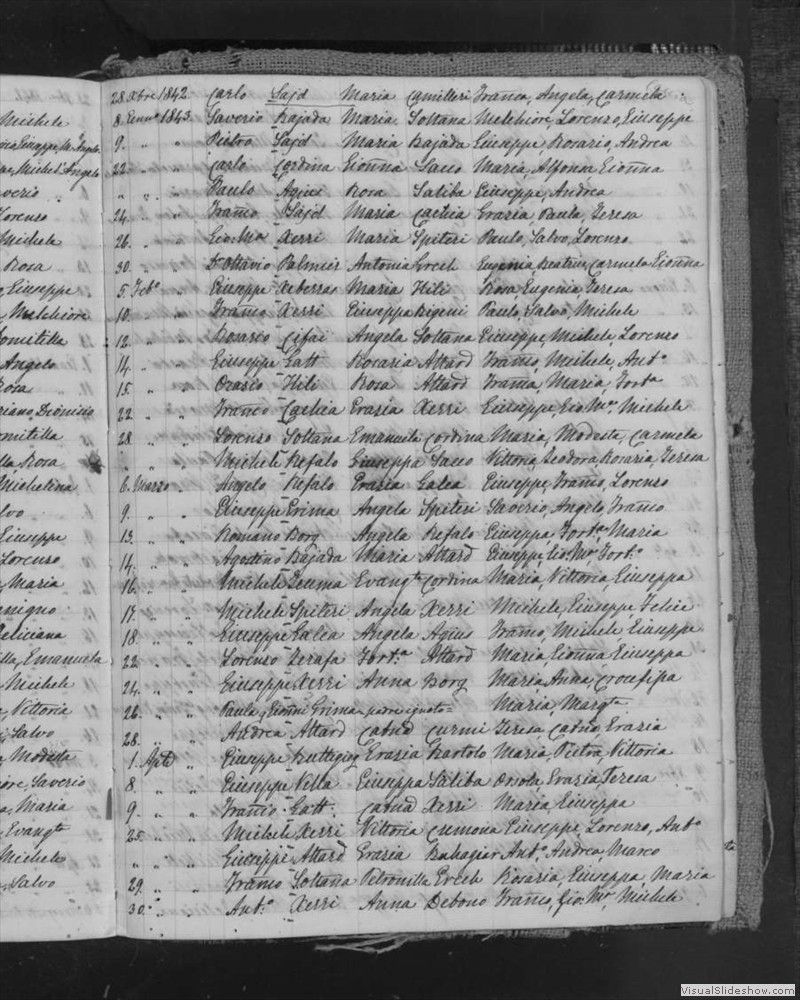 Michele
Giuseppe, Mª Angela
Michel'Angelo
Lorenzo
Michele
Rosa
Giuseppe
Melchiore
Domitilla
Angelo
Rosa
Dionisio
Domitilla
Rosa
Michelina
Salvo
Giuseppe
Lorenzo
Maria
Benigno
Feliciana
Emanuela
Michele
Vittoria
Salvo
Modesta
Saverio
Maria
Evangta
Michele
Salvo
28 Xbre 1842 Carlo Sajd Maria Camilleri Franca, Angela, Carmela
8 Gennº 1843 Saverio Bajada Maria Soltana Melchiore, Lorenzo, Giuseppe
9. " " Pietro Sajd Maria Bajada Giuseppe, Rosario, Andrea
22 " " Carlo Cordina Gionna Sacco Maria, Alfonsa, Gionna
" " " Paulo Agius Rosa Saliba Giuseppe, Andrea
24. " " Franco Sajd Maria Cachia Grazia, Paula, Teresa
26. " " Gio: Ma Xerri Maria Spiteri Paulo, Salvo, Lorenzo
30. " " Dr Ottavio Palmier Antonia Grech Eugenia, Beatrice, Carmela Gionna
5. Febº " Giuseppe Xeberras Maria Hili Rosa, Eugenia, Teresa
10. " " Franco Xerri Giuseppa Bigeni Paulo, Salvo, Michele
12. " " Rosario Cifai Angela Soltana Giuseppe, Michele, Lorenzo
14. " " Giuseppe Gatt Rosaria Attard Franco, Michele, Antº
15. " " Orazio Hili Rosa Attard Franca, Maria, Forta
22 " " Franco Cachia Grazia Xerri Giuseppe, Gio: Ma, Michele
28 " " Lorenzo Soltana Emanuela Cordina Maria, Modesta, Carmela
" " " Michele Refalo Giuseppa Sacco Vittoria, Teodora, Rosaria, Teresa
6. Marzo " Angelo Refalo Grazia Galea Giuseppe, Franco, Lorenzo
9. " " Giuseppe Grima Angela Spiteri Saverio, Angelo, Franco
13. " " Romano Borg Angela Refalo Giuseppa, Forta, Maria
14. " " Agostino Bajada Maria Attard Giuseppe, Gio: Ma, Fortº
16. " " Michele Deuma Evangta Cordina Maria, Vittoria, Giuseppa
17. " " Michele Spiteri Angela Xerri Michele, Giuseppe, Felice
18. " " Giuseppe Galea Angela Agius Franco, Michele Giuseppe
22 " " Lorenzo Zerafa Forta Attard Maria, Gionna Giuseppa
24. " " Giuseppe Xerri Anna Borg Maria Anna, Crocifissa
26. " " Paula, Gionni Grima - padre ignoto = Maria, Margta
28. " " Andrea Attard Catnd Curmi Teresa, Catna, Grazia
1. Aple " Giuseppe Buttigieg Grazia Bartolo Maria, Pietra, Vittoria
8. " " Giuseppe Vella Giuseppa Saliba Orsola, Grazia, Teresa
9. " " Franco Gatt Catnd Xerri Maria, Giuseppa
25. " " Michele Xerri Vittoria Cumona Giuseppe, Lorenzo, Antº
" " " Giuseppe Attard Grazia Buhagiar Antº, Andrea, Marco
29. " " Franco Soltana Petronilla Grech Rosaria, Giuseppa, Maria
30. " " Antº Xerri Anna Debono Franco, Gio: Ma, Michele
VisualSlideshow.com